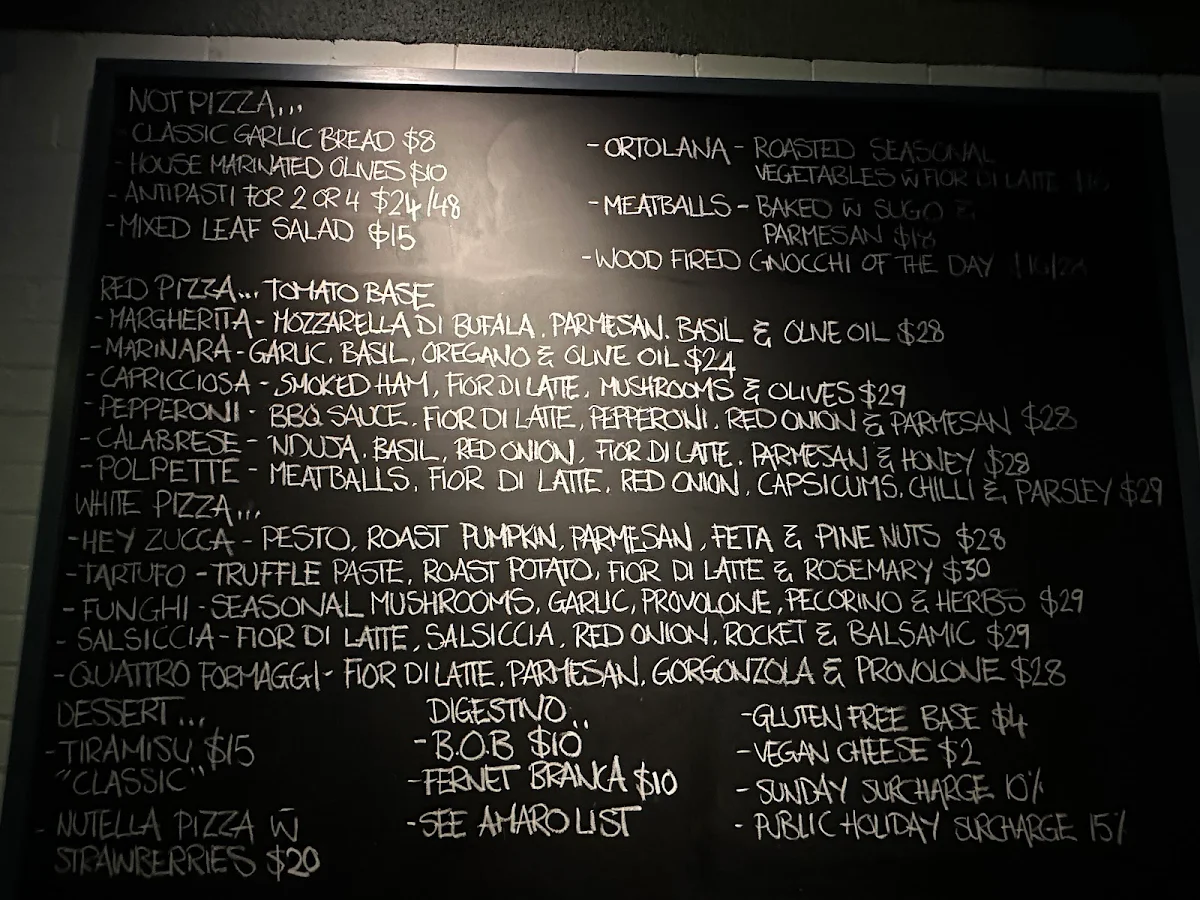 NOT PIZZA...
- CLASSIC GARLIC BREAD $8
- HOUSE MARINATED OLIVES $10
- ANTIPASTI FOR 2 OR 4 $24/48
- MIXED LEAF SALAD $15
- ORTOLANA - ROASTED SEASONAL
VEGETABLES W̄ FIOR DI LATTE
- MEATBALLS - BAKED W̄ SUGO &
PARMESAN $18
- WOOD FIRED GNOCCHI OF THE DAY
RED PIZZA... TOMATO BASE
- MARGHERITA - MOZZARELLA DI BUFALA, PARMESAN, BASIL & OLIVE OIL $28
- MARINARA - GARLIC, BASIL, OREGANO & OLIVE OIL $24
- CAPRICCIOSA - SMOKED HAM, FIOR DI LATTE, MUSHROOMS & OLIVES $29
- PEPPERONI - BBQ SAUCE, FIOR DI LATTE, PEPPERONI, RED ONION & PARMESAN $28
- CALABRESE - 'NDUJA, BASIL, RED ONION, FIOR DI LATTE, PARMESAN & HONEY $28
- POLPETTE - MEATBALLS, FIOR DI LATTE, RED ONION, CAPSICUMS, CHILLI & PARSLEY $29
WHITE PIZZA...
- HEY ZUCCA - PESTO, ROAST PUMPKIN, PARMESAN, FETA & PINE NUTS $28
- TARTUFO - TRUFFLE PASTE, ROAST POTATO, FIOR DI LATTE & ROSEMARY $30
- FUNGHI - SEASONAL MUSHROOMS, GARLIC, PROVOLONE, PECORINO & HERBS $29
- SALSICCIA - FIOR DI LATTE, SALSICCIA, RED ONION, ROCKET & BALSAMIC $29
- QUATTRO FORMAGGI - FIOR DI LATTE, PARMESAN, GORGONZOLA & PROVOLONE $28
DESSERT...
- TIRAMISU $15
"CLASSIC"
- NUTELLA PIZZA W̄
STRAWBERRIES $20
DIGESTIVO..
- B.O.B $10
- FERNET BRANCA $10
- SEE AMARO LIST
- GLUTEN FREE BASE $4
- VEGAN CHEESE $2
- SUNDAY SURCHARGE 10%
- PUBLIC HOLIDAY SURCHARGE 15%